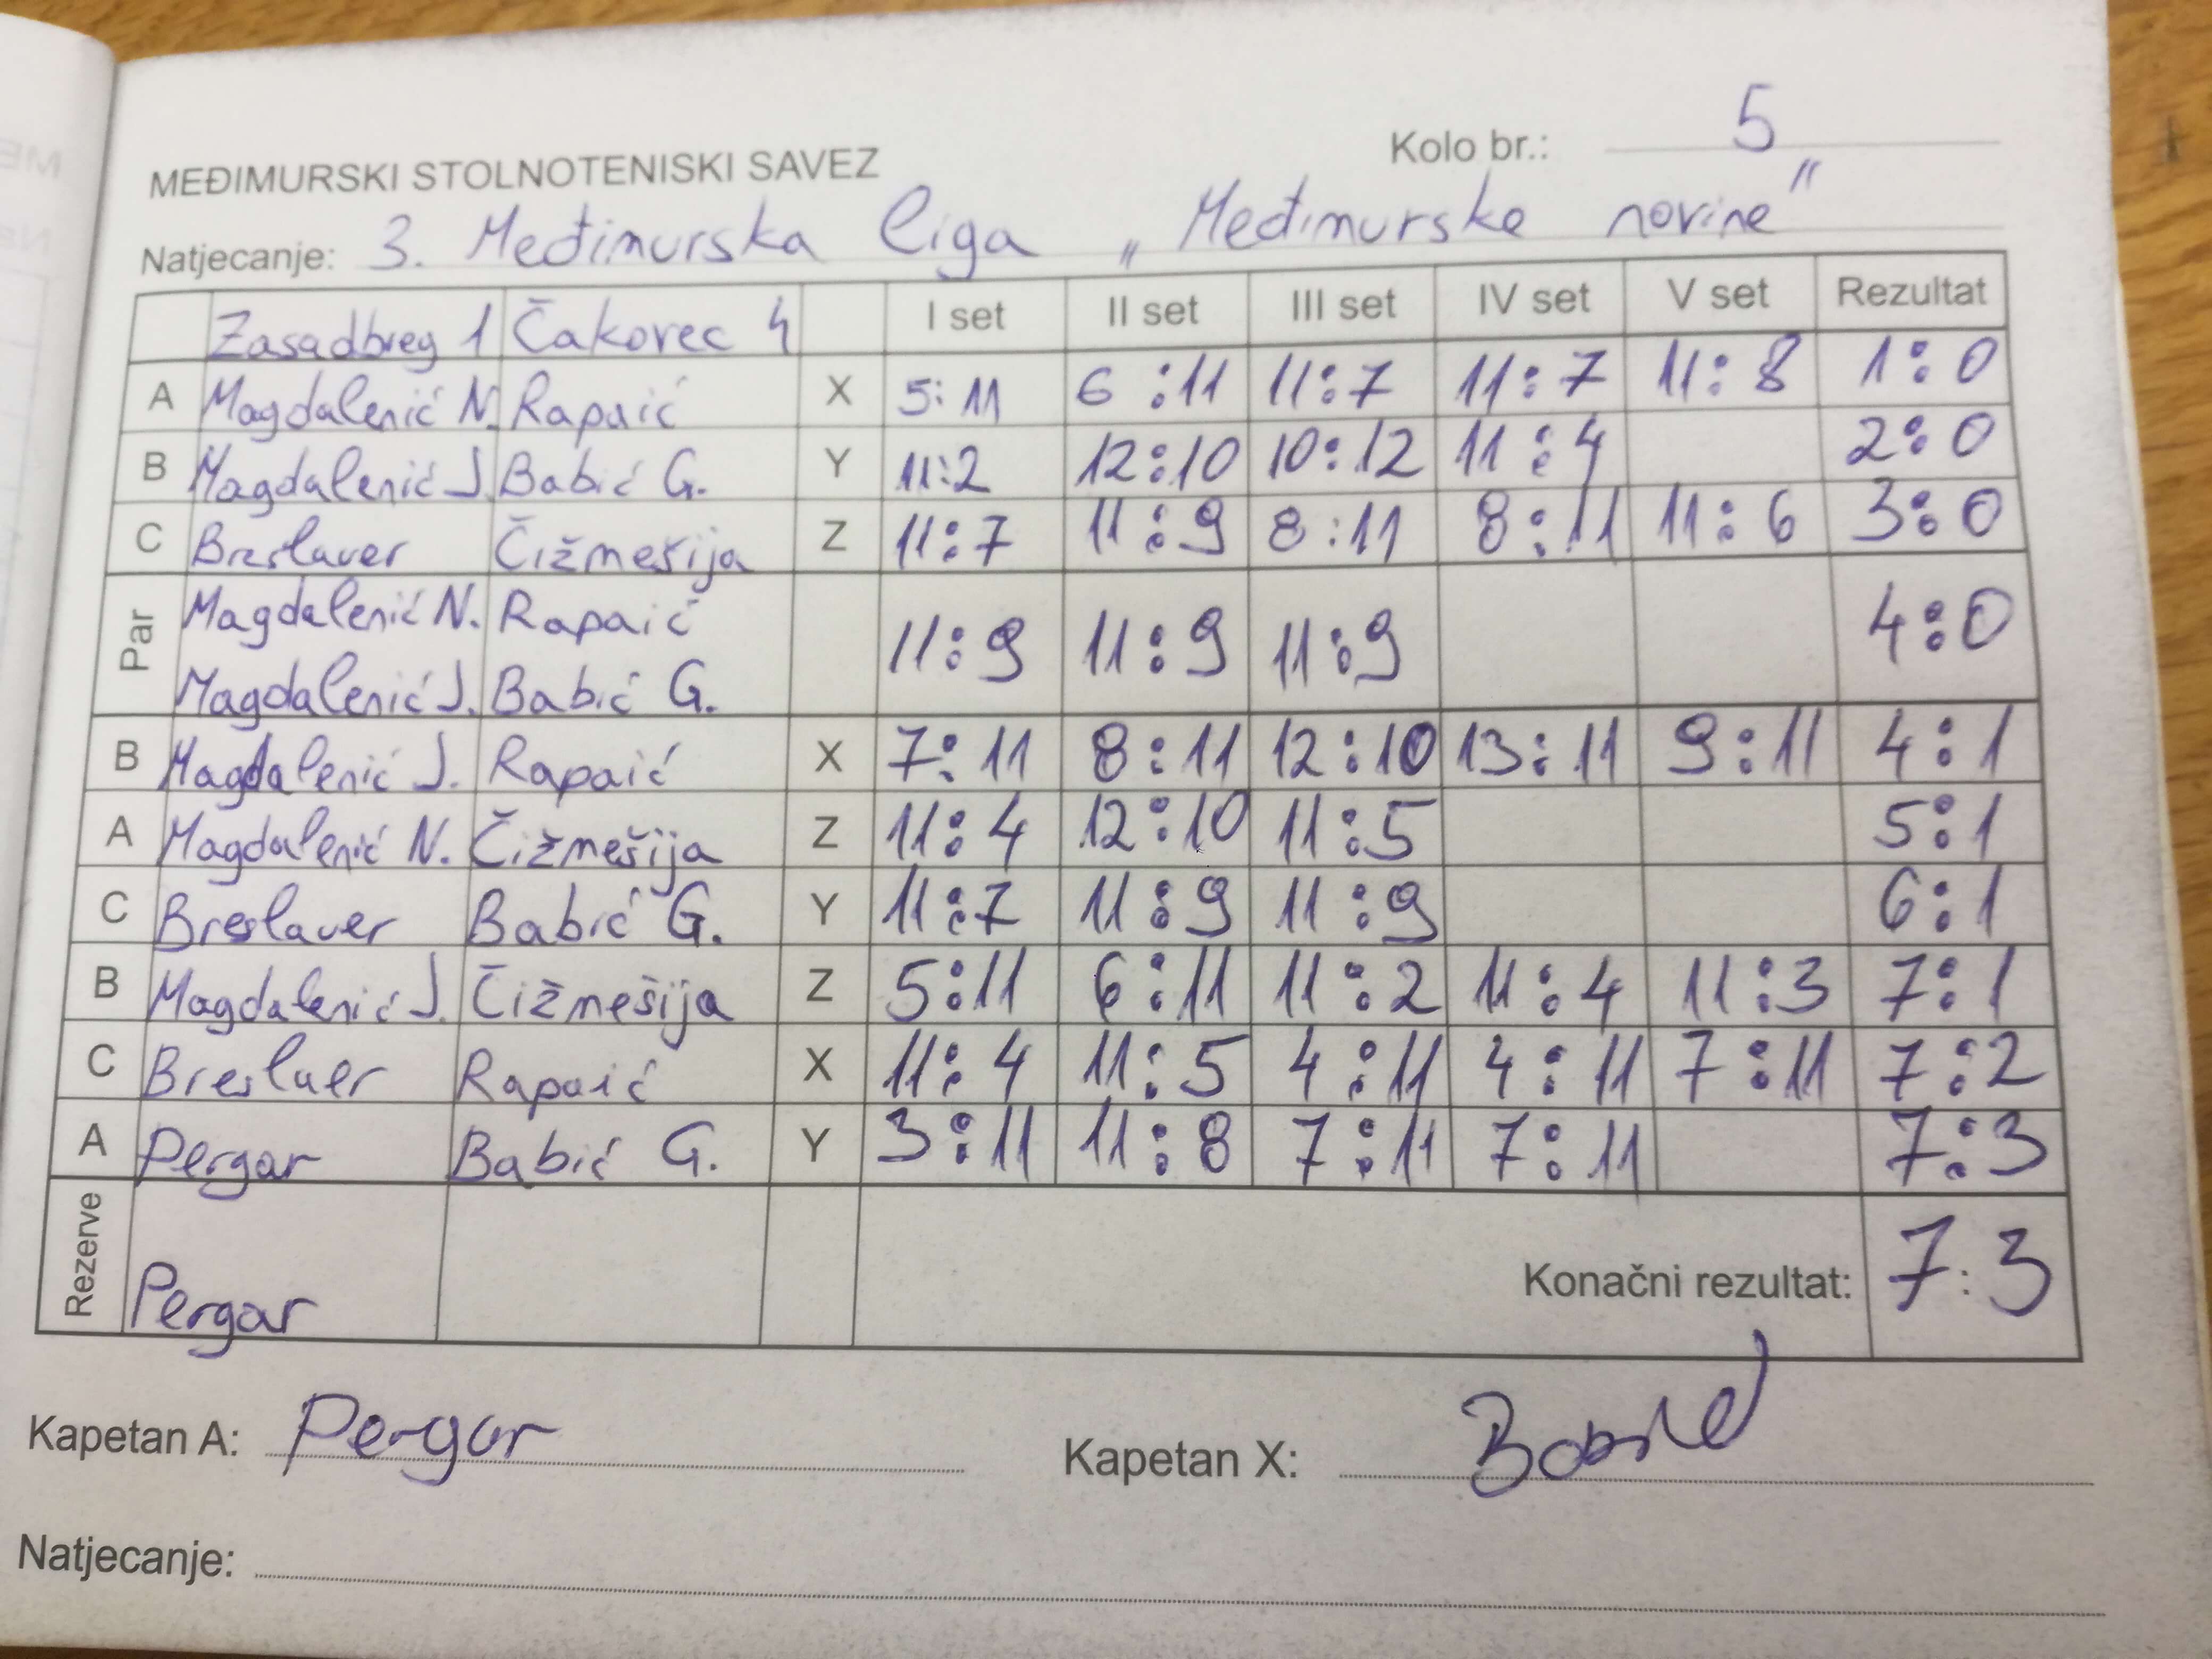 Kolo br.: 5
MEĐIMURSKI STOLNOTENISKI SAVEZ
Natjecanje: 3. Međimurska liga „Međimurske novine"
Zasadbreg 1 Čakovec 4 I set II set III set IV set V set Rezultat
A Magdalenić N. Rapaić X 5:11 6:11 11:7 11:7 11:8 1:0
B Magdalenić J. Babić G. Y 11:2 12:10 10:12 11:4 2:0
C Breslauer Čižmešija Z 11:7 11:9 8:11 8:11 11:6 3:0
Par Magdalenić N. Rapaić 11:9 11:9 11:9 4:0
Magdalenić J. Babić G.
B Magdalenić J. Rapaić X 7:11 8:11 12:10 13:11 9:11 4:1
A Magdalenić N. Čižmešija Z 11:4 12:10 11:5 5:1
C Breslauer Babić G. Y 11:7 11:9 11:9 6:1
B Magdalenić J. Čižmešija Z 5:11 6:11 11:2 11:4 11:3 7:1
C Bresluer Rapaić X 11:4 11:5 4:11 4:11 7:11 7:2
A Pergar Babić G. Y 3:11 11:8 7:11 7:11 7:3
Rezerve Pergar Konačni rezultat: 7:3
Kapetan A: Pergar Kapetan X:
Natjecanje: